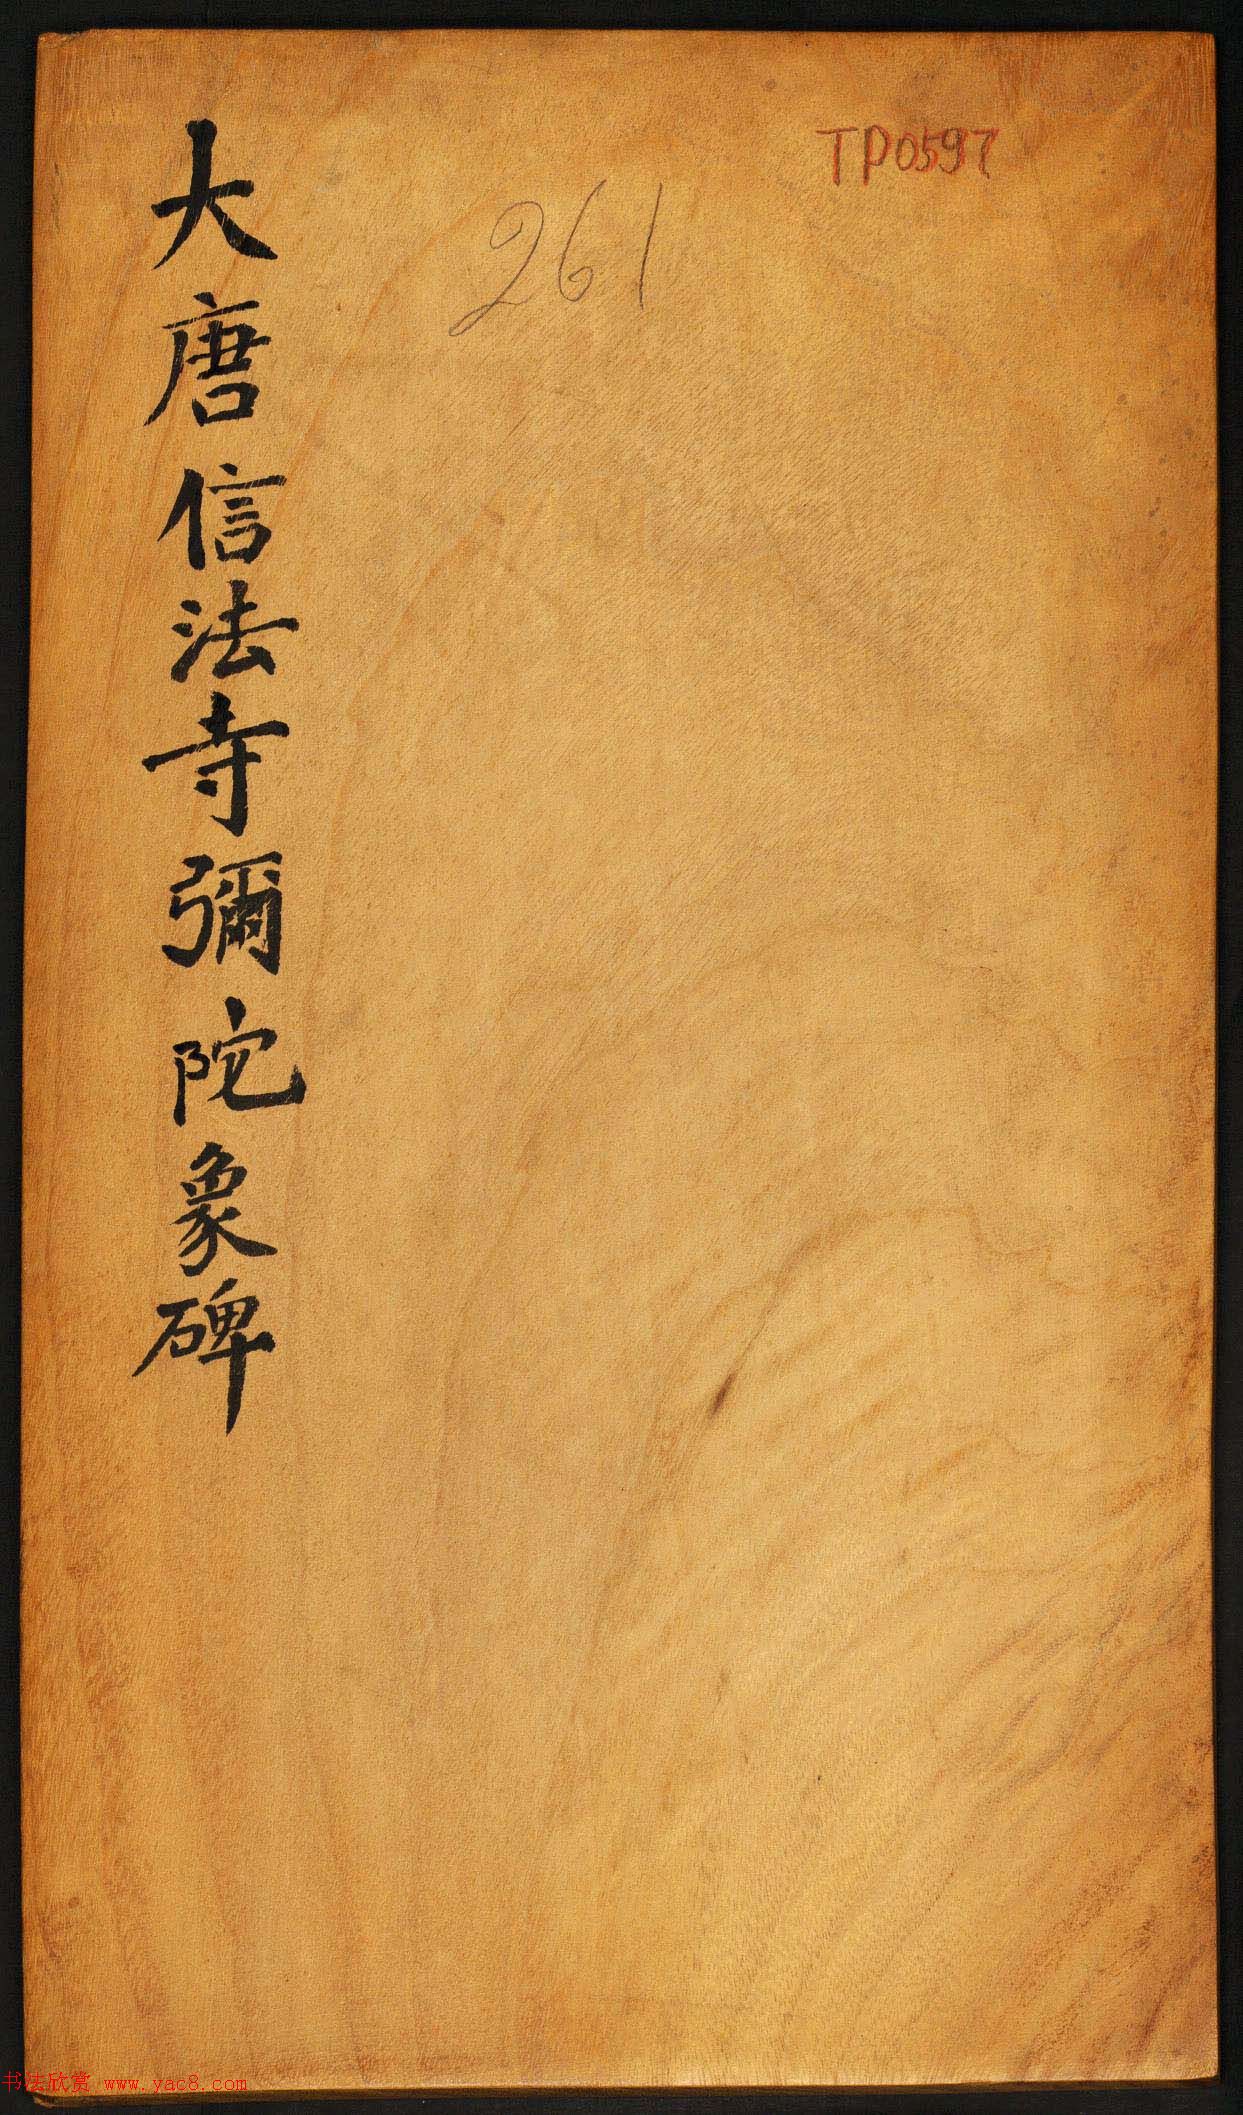 大唐信法寺彌陀象碑
TP0597
261
书法欣赏 www.yac8.com